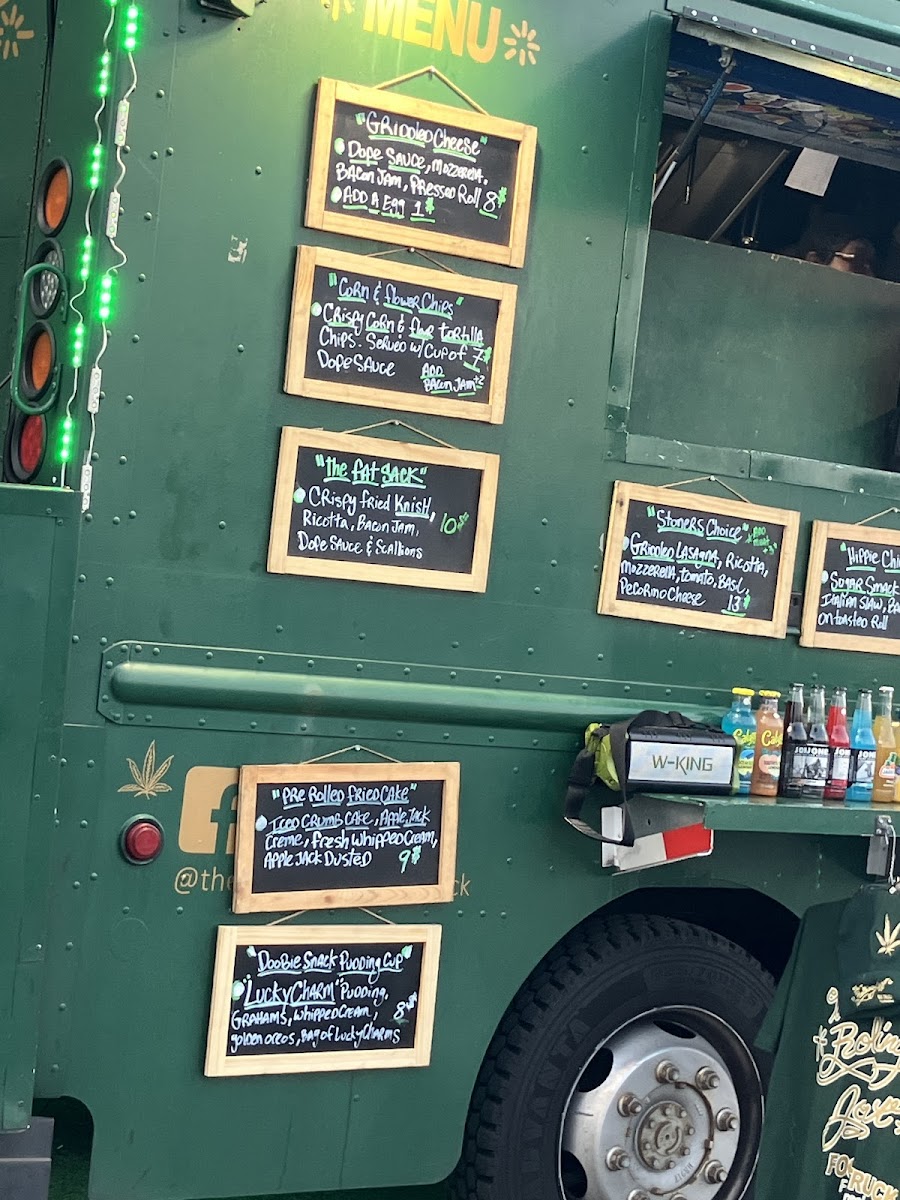 MENU
"GRiDDleD CHeeSe"
DOPE SAUCE, MOZZERELLA,
BACON JAM, PRESSED ROLL 8
ADD A Egg 1
"CORN & flower CHiPS"
CRiSpy CORN & flour tORtillA
CHiPS - SeRveD w/ CUP of 7
DOPE SAUCE ADD
BACON JAM +2
"the fAt SACK"
CRiSPy fRieD KNiSH,
RiCOttA, BACON JAM, 10
DOPE SAUCE & SCAlliONS
"StONeRS CHOiCe"
GRiDDleD LASAGNA, RiCOttA,
MOZZERELLA, tOMAtO, BASiL,
PeCORiNO CHeeSe 13
"HiPPie
SUGAR SMACK
ItAliAN SlAW,
ON tOASteD ROll
W-KING
JONES
JONES
"PRE ROlleD fRieD CAKe"
ICED CRUMB CAKE, APPle JACK
CReMe, fResh WHiPPeD CReAM,
APPle JACK DUSteD 9
@the
ck
"DOOBie SNACK PUDDiNG CUP"
"LUCKY CHARM" PUDDiNG,
GRAHAMS, WHiPPeD CReAM, 8
golDeN OReOS, BAg of LUCKy CHARMS